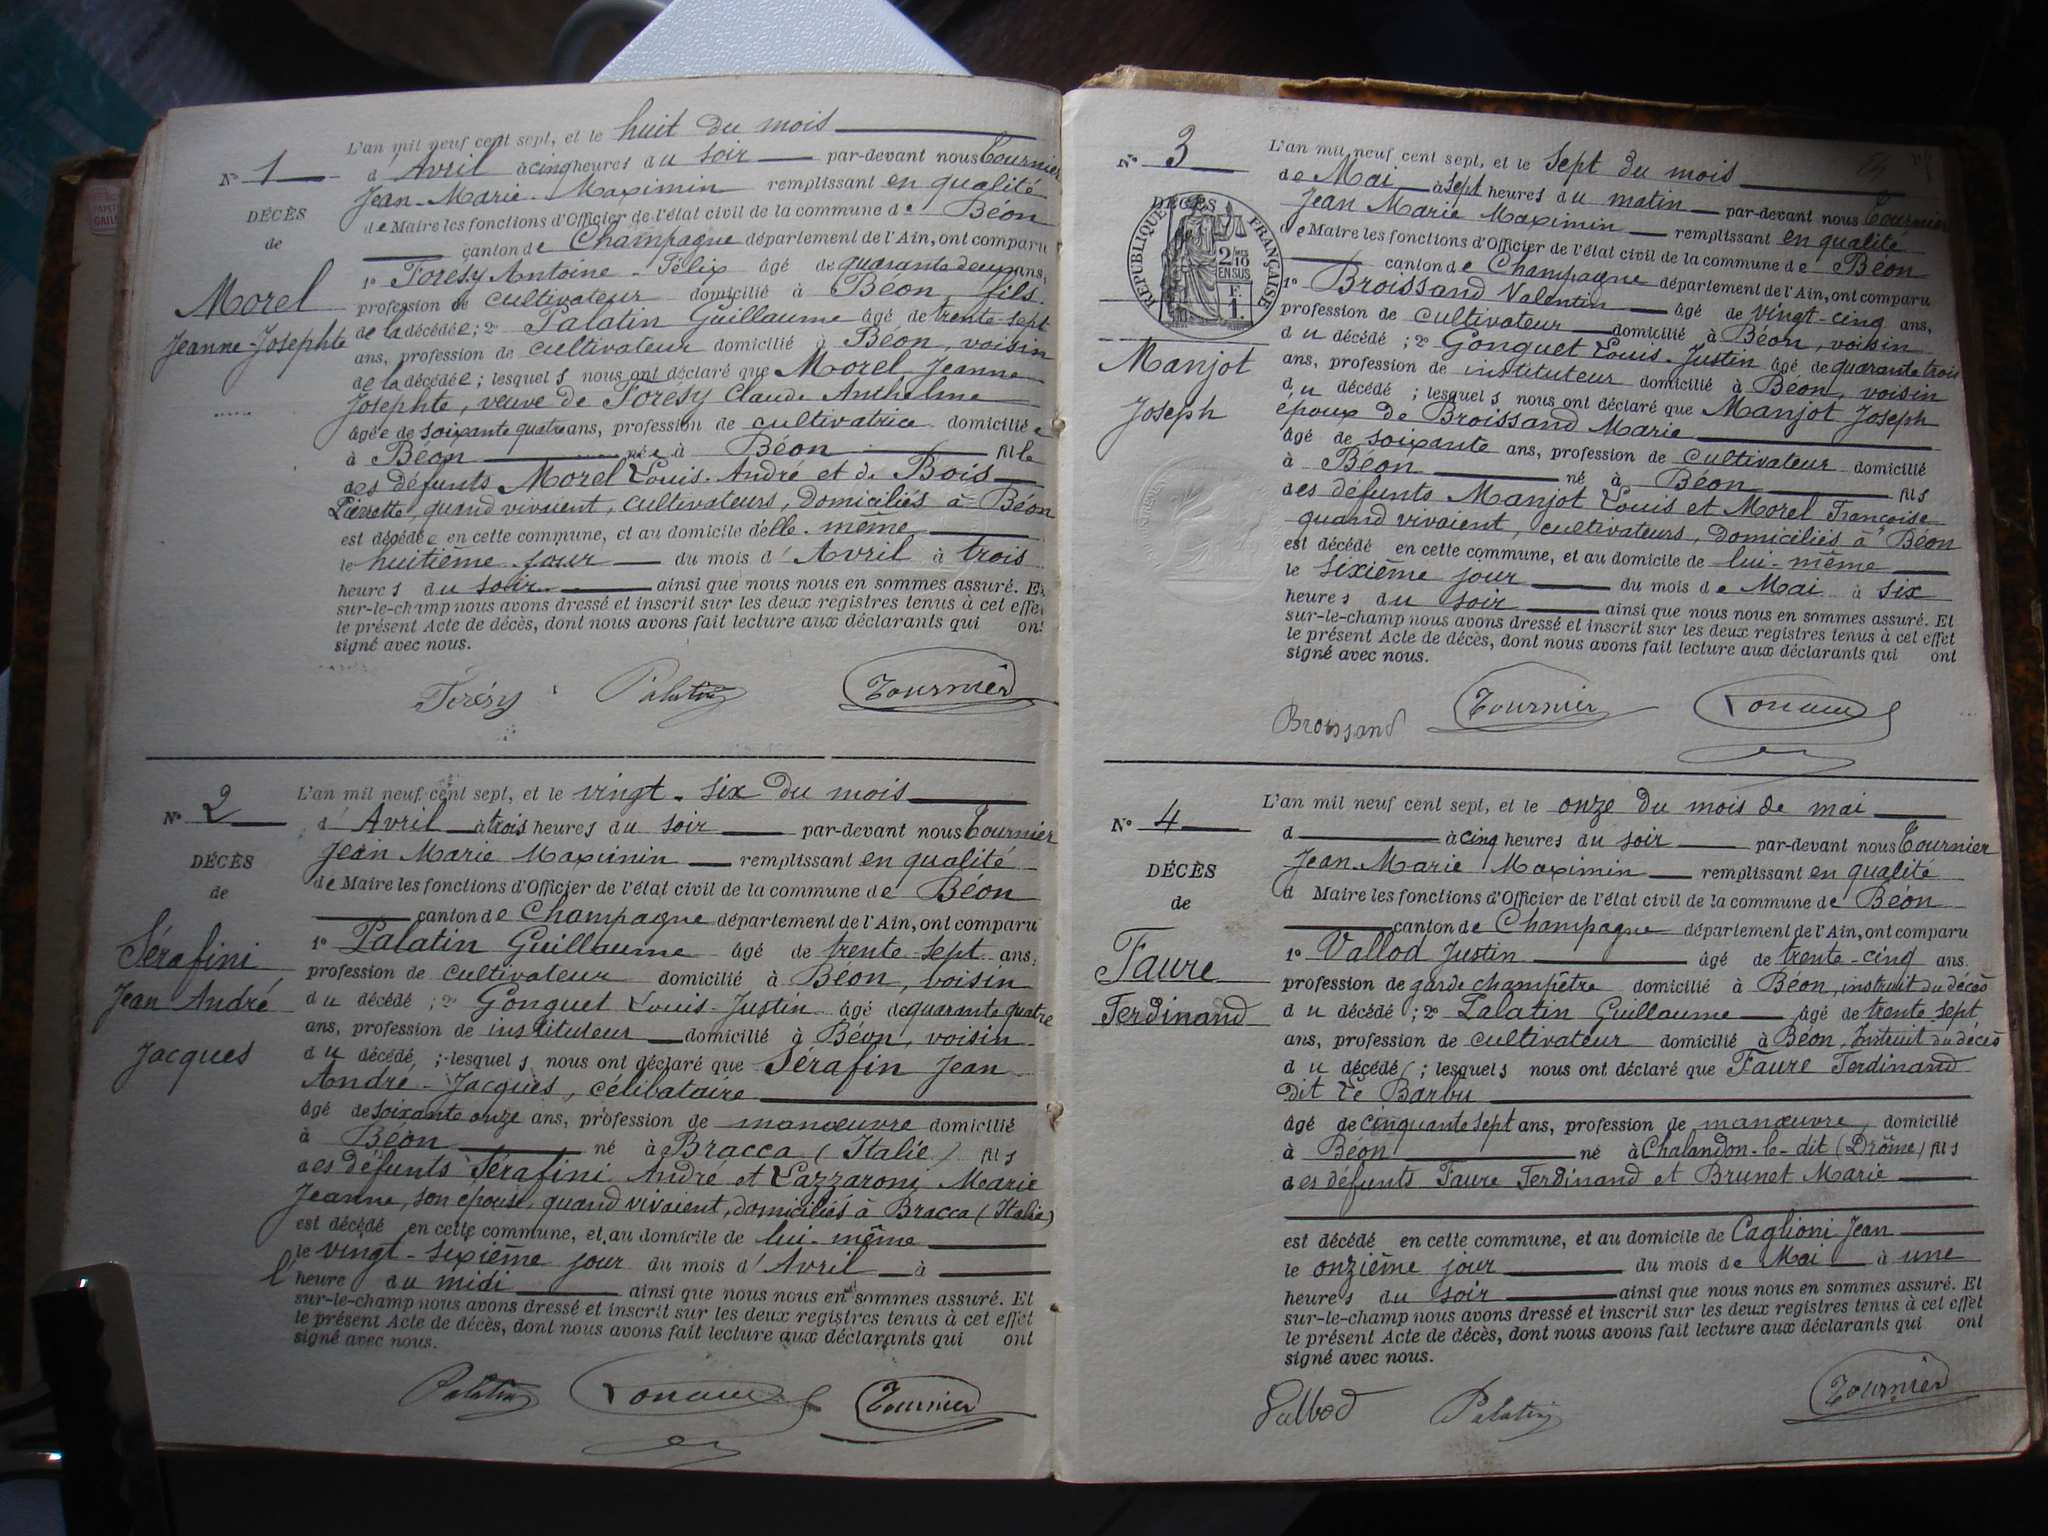 L'an mil neuf cent sept, et le huit du mois
N° 1 d'Avril à cinq heures du soir par-devant nous Tournier
Jean-Marie-Maximin remplissant en qualité
DÉCÈS de Maire les fonctions d'Officier de l'état civil de la commune de Béon
de canton de Champagne département de l'Ain, ont comparu
1° Forésy Antoine-Félix âgé de quarante deux ans,
Morel profession de cultivateur domicilié à Béon, fils
Jeanne-Josephte de la décédée; 2° Palatin Guillaume âgé de trente-sept
ans, profession de cultivateur domicilié à Béon, voisin
de la décédée; lesquels nous ont déclaré que Morel Jeanne
Josephte, veuve de Forésy Claude Anthelme
âgée de soixante quatre ans, profession de cultivatrice domiciliée
à Béon née à Béon fille
des défunts Morel Louis-André et de Bois
Pierrette, quand vivaient, cultivateurs, domiciliés à Béon
est décédée en cette commune, et au domicile d'elle-même
le huitième jour du mois d'Avril à trois
heures du soir ainsi que nous nous en sommes assuré. Et
sur-le-champ nous avons dressé et inscrit sur les deux registres tenus à cet effet
le présent Acte de décès, dont nous avons fait lecture aux déclarants qui ont
signé avec nous.
Forésy Palatin Tournier
L'an mil neuf cent sept, et le vingt-six du mois
N° 2 d'Avril à trois heures du soir par-devant nous Tournier
Jean Marie Maximin remplissant en qualité
DÉCÈS de Maire les fonctions d'Officier de l'état civil de la commune de Béon
de canton de Champagne département de l'Ain, ont comparu
1° Palatin Guillaume âgé de trente sept ans,
Sérafini profession de cultivateur domicilié à Béon, voisin
Jean André du décédé; 2° Gonguet Louis-Justin âgé de quarante quatre
ans, profession de instituteur domicilié à Béon, voisin
Jacques du décédé; lesquels nous ont déclaré que Sérafin Jean
André-Jacques, célibataire
âgé de soixante onze ans, profession de manœuvre domicilié
à Béon né à Bracca (Italie) fils
des défunts Sérafini André et Lazzaroni Marie
Jeanne, son épouse, quand vivaient, domiciliés à Bracca (Italie)
est décédé en cette commune, et au domicile de lui-même
le vingt-sixième jour du mois d'Avril à
l'heure du midi ainsi que nous nous en sommes assuré. Et
sur-le-champ nous avons dressé et inscrit sur les deux registres tenus à cet effet
le présent Acte de décès, dont nous avons fait lecture aux déclarants qui ont
signé avec nous.
Palatin Tournier
L'an mil neuf cent sept, et le sept du mois
N° 3 de Mai à sept heures du matin par-devant nous Tournier
Jean Marie Maximin remplissant en qualité
DÉCÈS de Maire les fonctions d'Officier de l'état civil de la commune de Béon
RÉPUBLIQUE FRANÇAISE
canton de Champagne département de l'Ain, ont comparu
1° Broissand Valentin âgé de vingt-cinq ans,
profession de cultivateur domicilié à Béon, voisin
du décédé; 2° Gonguet Louis-Justin âgé de quarante trois
Manjot ans, profession de instituteur domicilié à Béon, voisin
du décédé; lesquels nous ont déclaré que Manjot Joseph
Joseph époux de Broissand Marie
âgé de soixante ans, profession de cultivateur domicilié
à Béon né à Béon fils
des défunts Manjot Louis et Morel Françoise
quand vivaient, cultivateurs, domiciliés à Béon
est décédé en cette commune, et au domicile de lui-même
le sixième jour du mois de Mai à six
heures du soir ainsi que nous nous en sommes assuré. Et
sur-le-champ nous avons dressé et inscrit sur les deux registres tenus à cet effet
le présent Acte de décès, dont nous avons fait lecture aux déclarants qui ont
signé avec nous.
Broissand Tournier
L'an mil neuf cent sept, et le onze du mois de mai
N° 4 d à cinq heures du soir par-devant nous Tournier
Jean-Marie Maximin remplissant en qualité
DÉCÈS d Maire les fonctions d'Officier de l'état civil de la commune de Béon
de canton de Champagne département de l'Ain, ont comparu
1° Vallod Justin âgé de trente-cinq ans
Faure profession de garde champêtre domicilié à Béon, instruit du décès
Ferdinand du décédé; 2° Palatin Guillaume âgé de trente sept
ans, profession de cultivateur domicilié à Béon, Instruit du décès
du décédé; lesquels nous ont déclaré que Faure Ferdinand
dit Le Barbu
âgé de cinquante sept ans, profession de manœuvre domicilié
à Béon né à Chalandon-le-dit (Drôme) fils
des défunts Faure Ferdinand et Brunet Marie
est décédé en cette commune, et au domicile de Caglioni Jean
le onzième jour du mois de Mai à une
heures du soir ainsi que nous nous en sommes assuré. Et
sur-le-champ nous avons dressé et inscrit sur les deux registres tenus à cet effet
le présent Acte de décès, dont nous avons fait lecture aux déclarants qui ont
signé avec nous.
Vallod Palatin Tournier